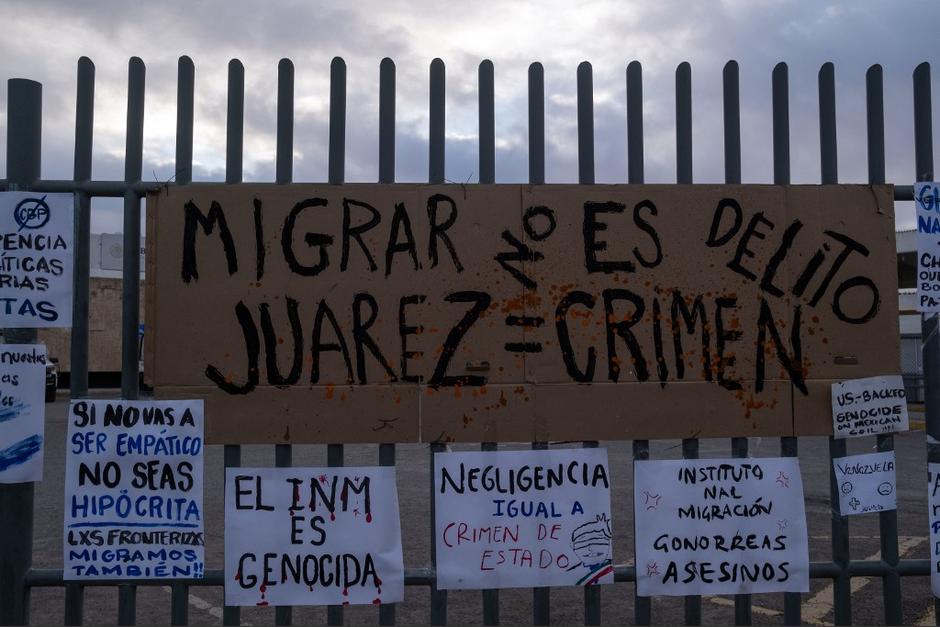 MIGRAR NO ES DELITO
JUAREZ = CRIMEN
CBP
PENCIA
LÍTICAS
RIAS
TAS
SI NO VAS A
SER EMPÁTICO
NO SEAS
HIPÓCRITA
LXS FRONTERIZXS
MIGRAMOS
TAMBIÉN!!
EL INM
ES
GENOCIDA
NEGLIGENCIA
IGUAL A
CRIMEN DE
ESTADO
INSTITUTO
NAL
MIGRACIÓN
GONORREAS
ASESINOS
U.S.-BACKED
GENOCIDE
ON MEXICAN
SOIL !!!!
VENEZUELA